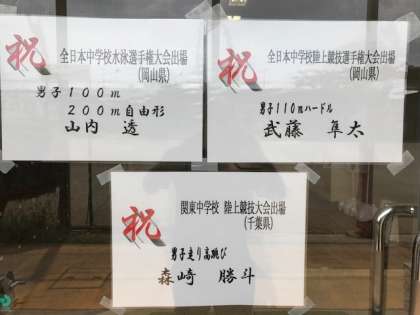 祝
全日本中学校水泳選手権大会出場
(岡山県)
男子100m
200m自由形
山内 透
祝
全日本中学校陸上競技選手権大会出場
(岡山県)
男子110mハードル
武藤 隼太
祝
関東中学校 陸上競技大会出場
(千葉県)
男子走り高跳び
森崎 勝斗